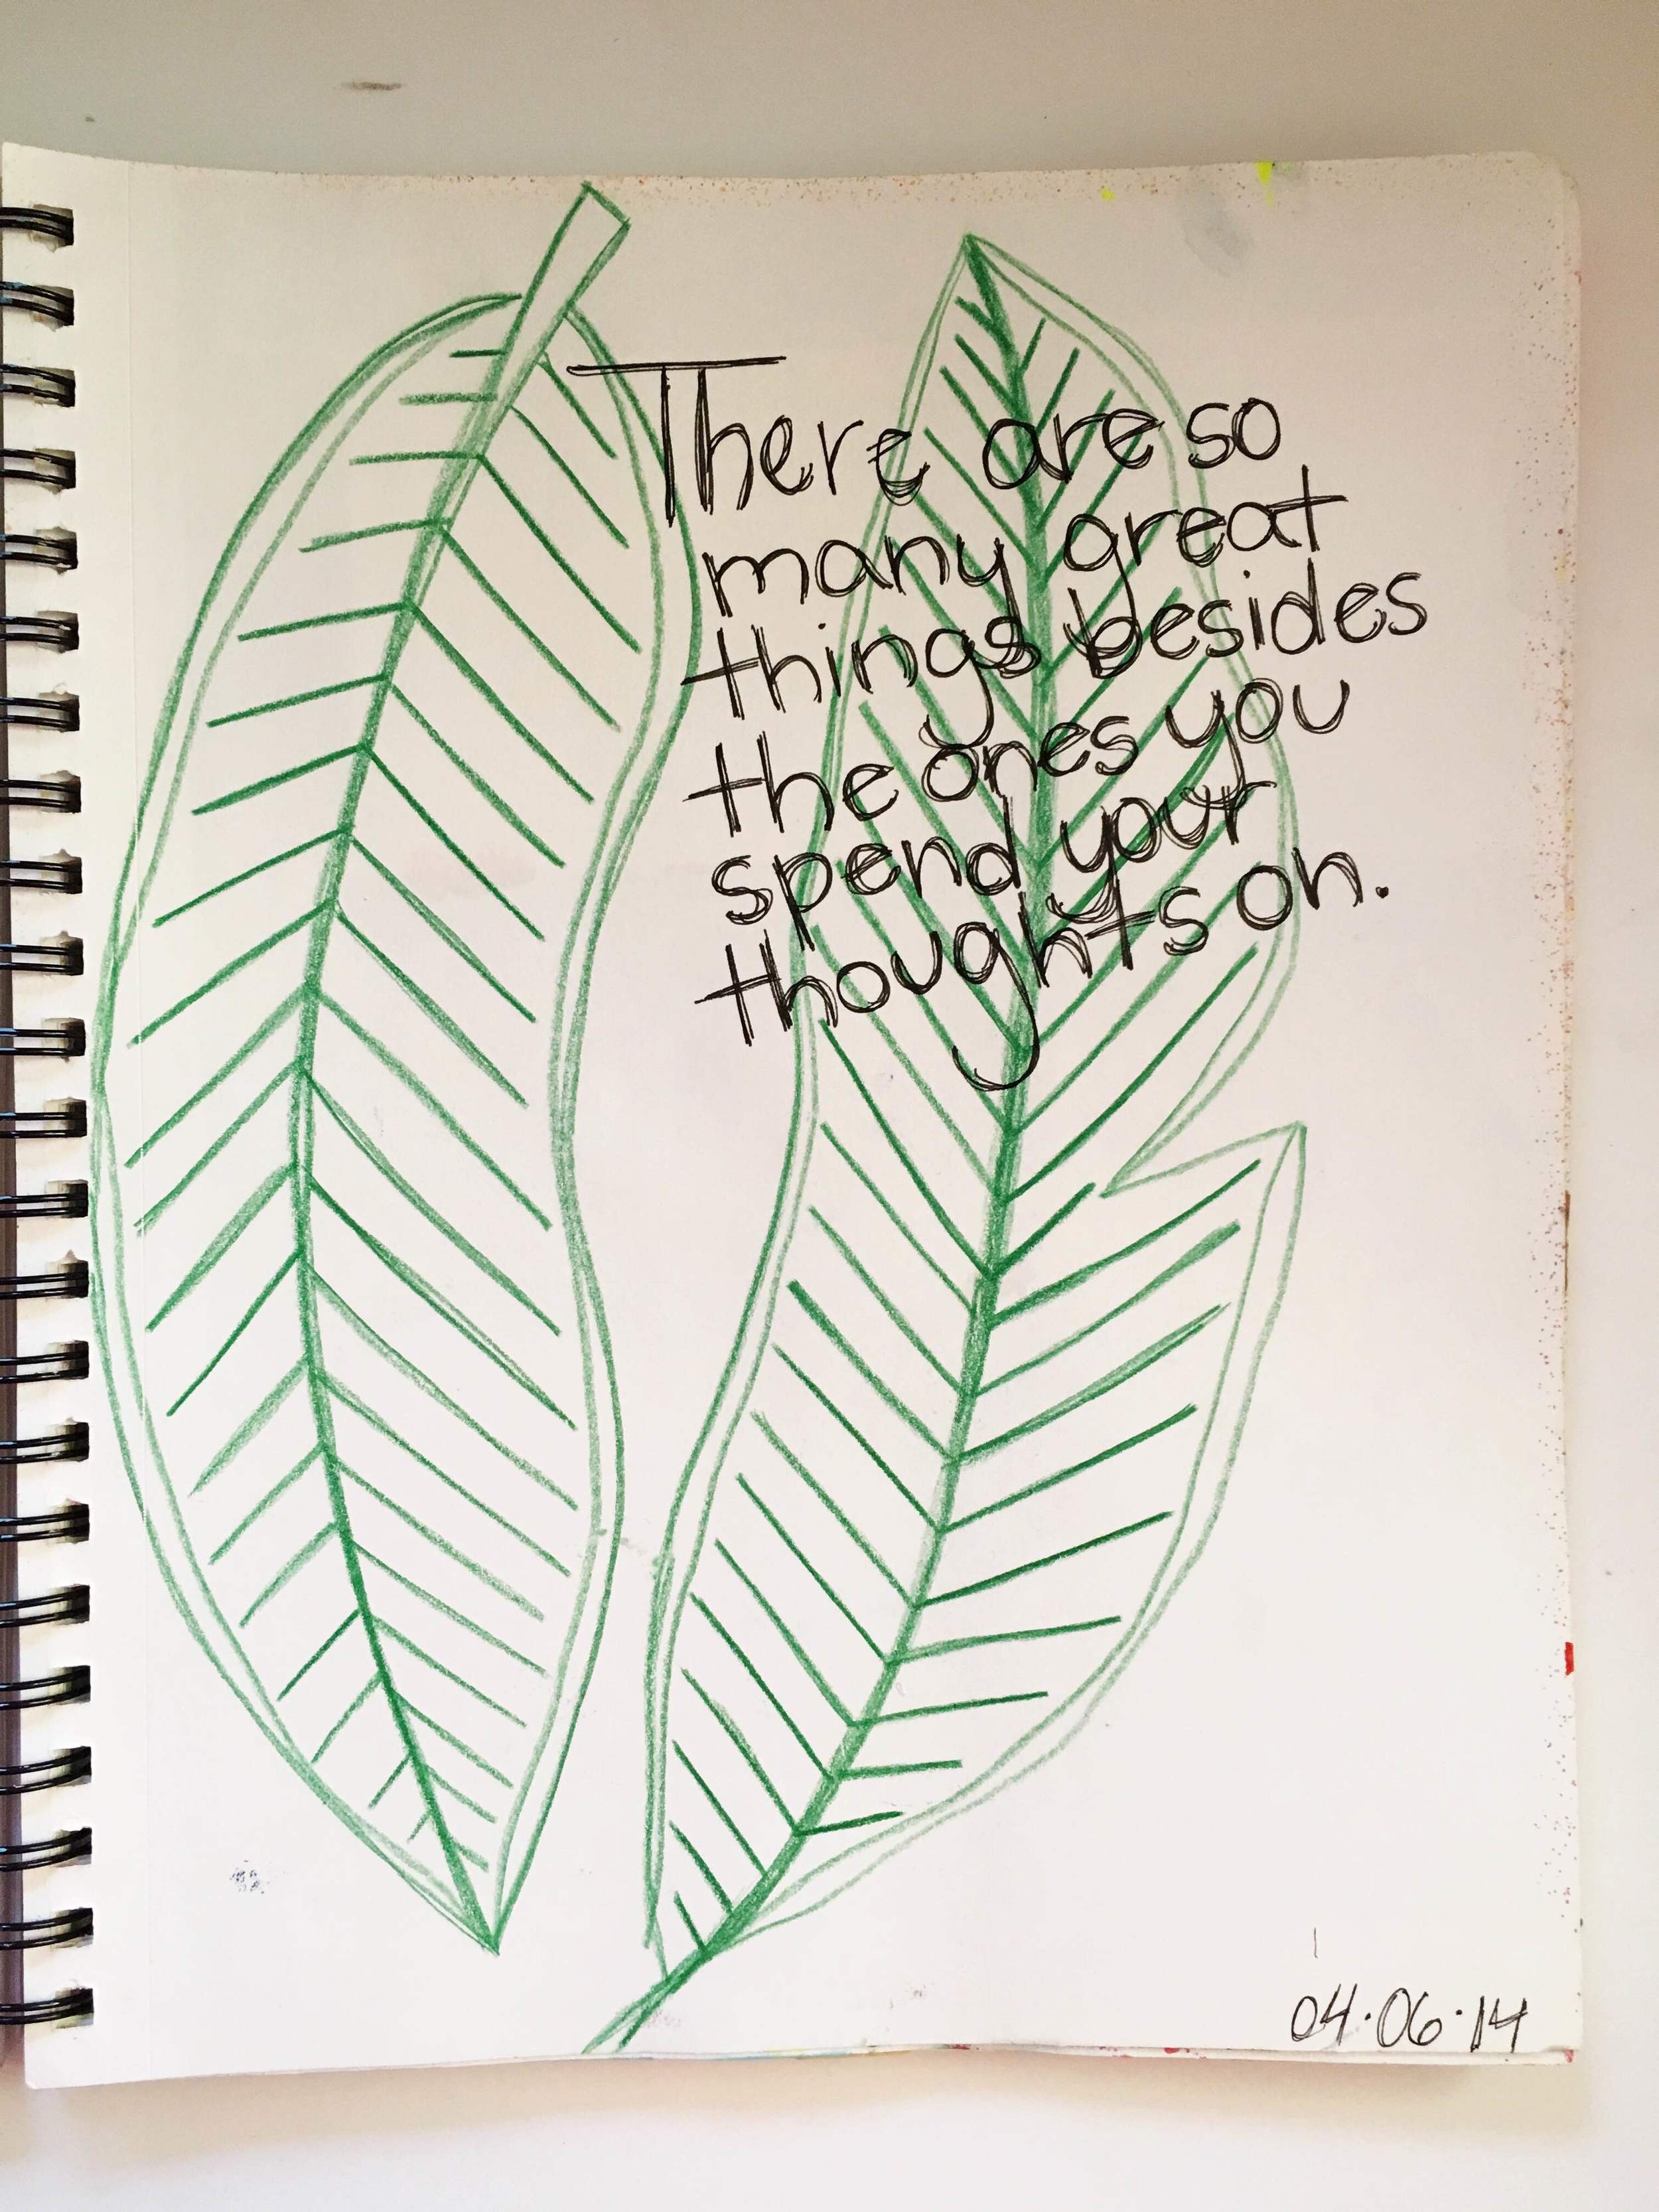 There are so
many great
things besides
the ones you
spend your
thoughts on.
04.06.14